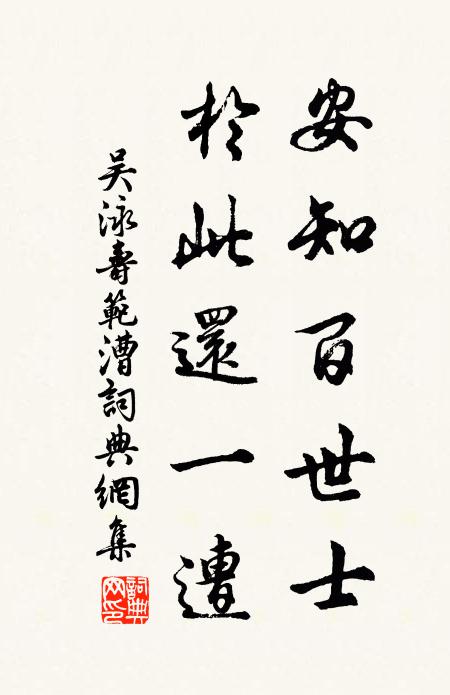 安知百世士
於此還一遭
吴泳壽範漕詞典網集
詞典網印